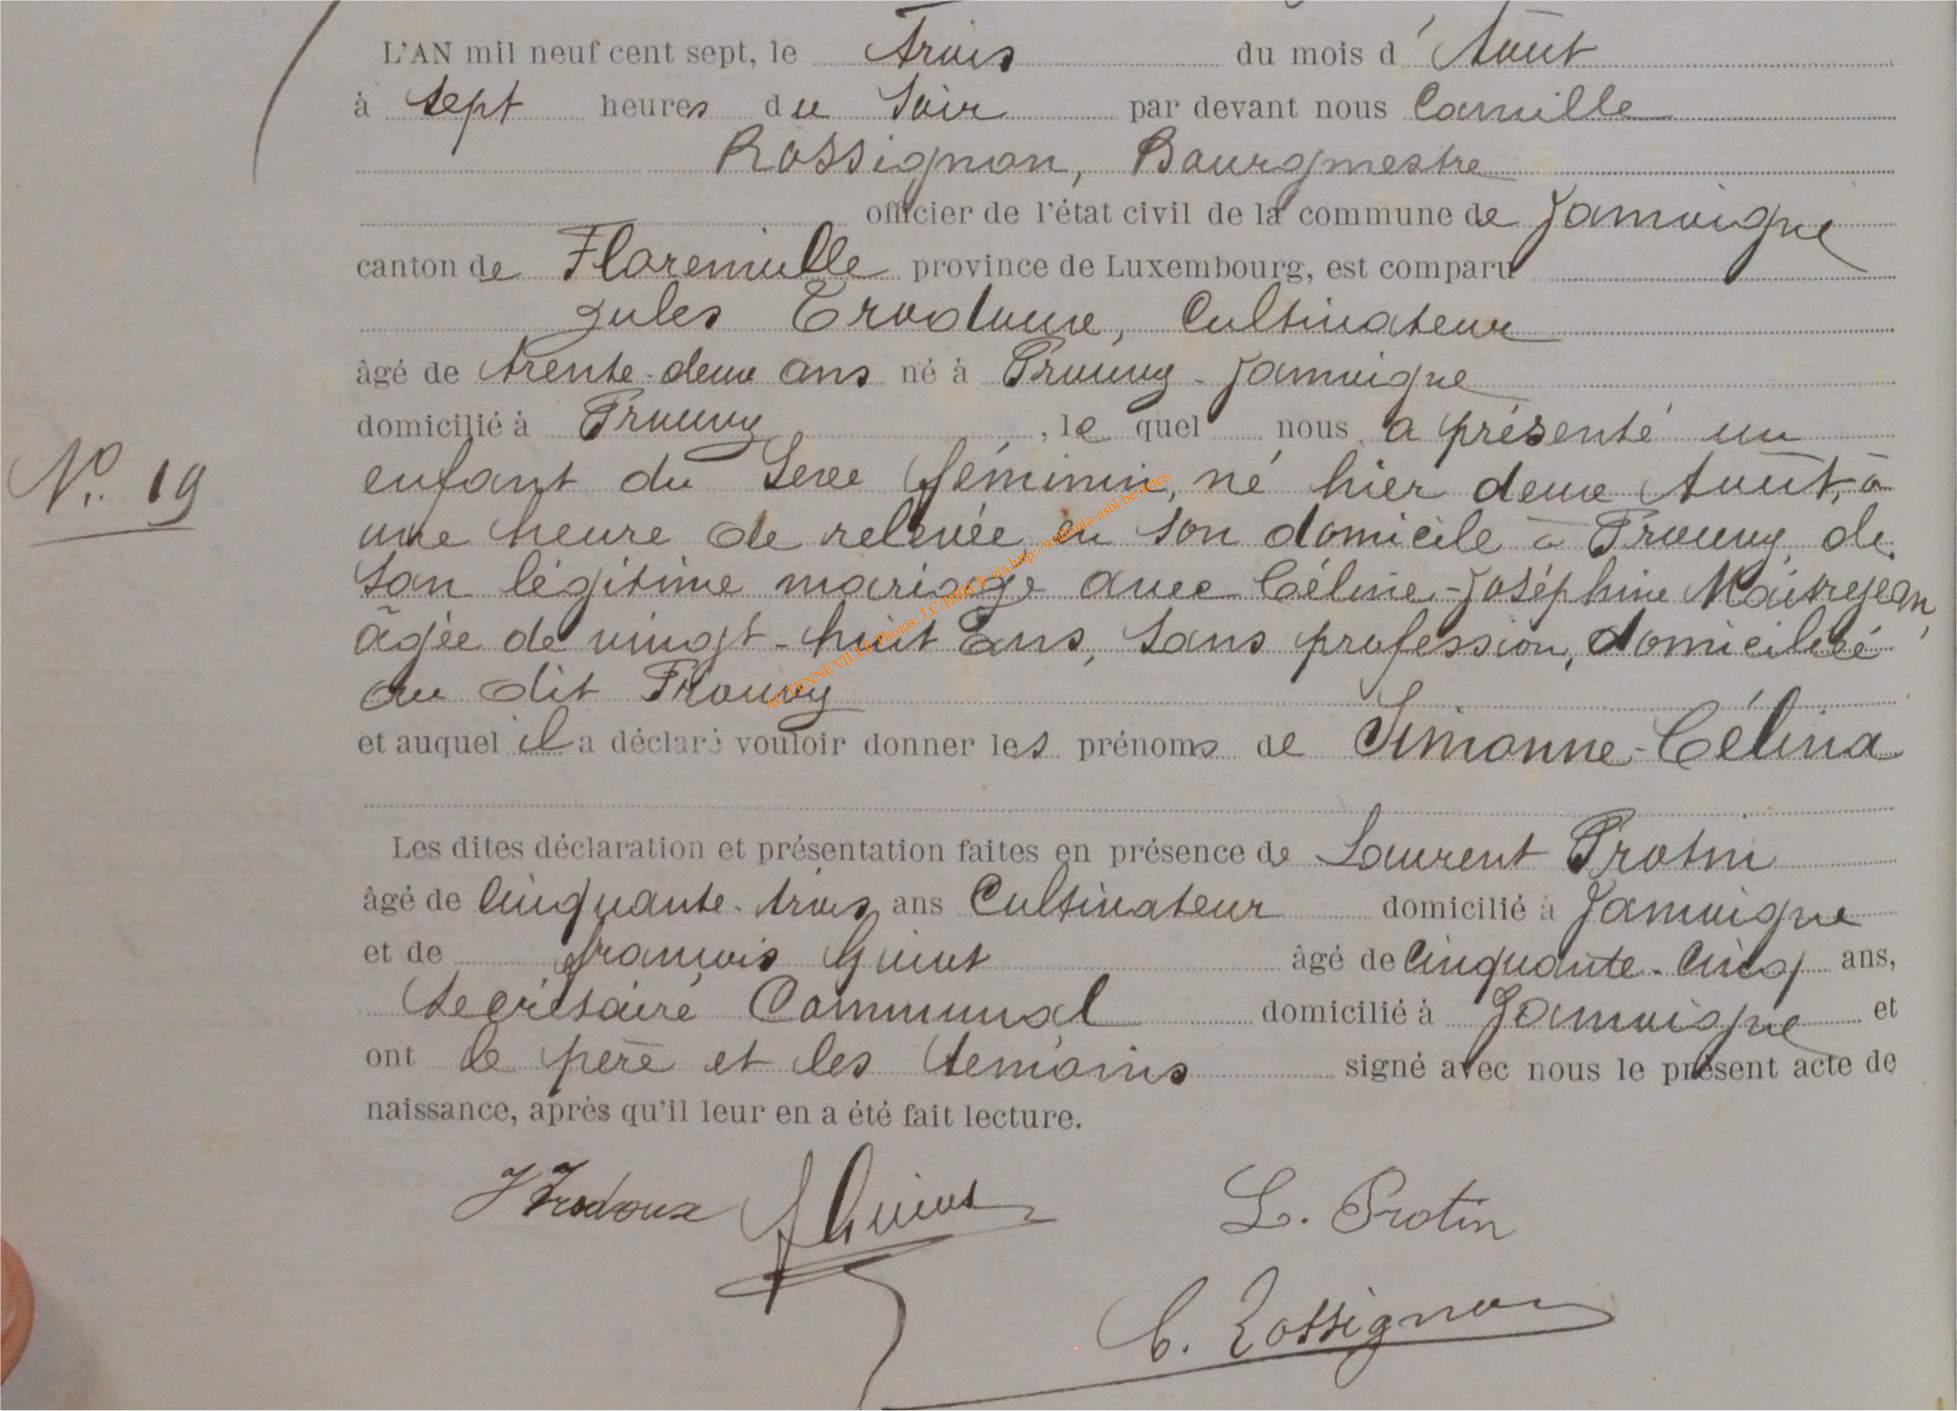 L'AN mil neuf cent sept, le Trois du mois d'Août
à sept heures du soir par devant nous Camille
Rossignon, Bourgmestre
officier de l'état civil de la commune de Jamoigne
canton de Florenville province de Luxembourg, est comparu
Jules Trodoux, Cultivateur
âgé de trente-deux ans né à Prouvy-Jamoigne
domicilié à Prouvy, le quel nous a présenté un
enfant du sexe féminin, né hier deux Août, à
une heure de relevée en son domicile à Prouvy, de
son légitime mariage avec Céline-Joséphine Maitrejean,
âgée de vingt-huit ans, sans profession, domiciliée
au dit Prouvy
et auquel il a déclaré vouloir donner les prénoms de Simonne-Célina
Les dites déclaration et présentation faites en présence de Laurent Protin
âgé de cinquante-trois ans Cultivateur domicilié à Jamoigne
et de françois Guiot âgé de cinquante-cinq ans,
secrétaire Communal domicilié à Jamoigne et
ont le père et les témoins signé avec nous le présent acte de
naissance, après qu'il leur en a été fait lecture.
N° 19
J Trodoux
L. Protin
C. Rossignon